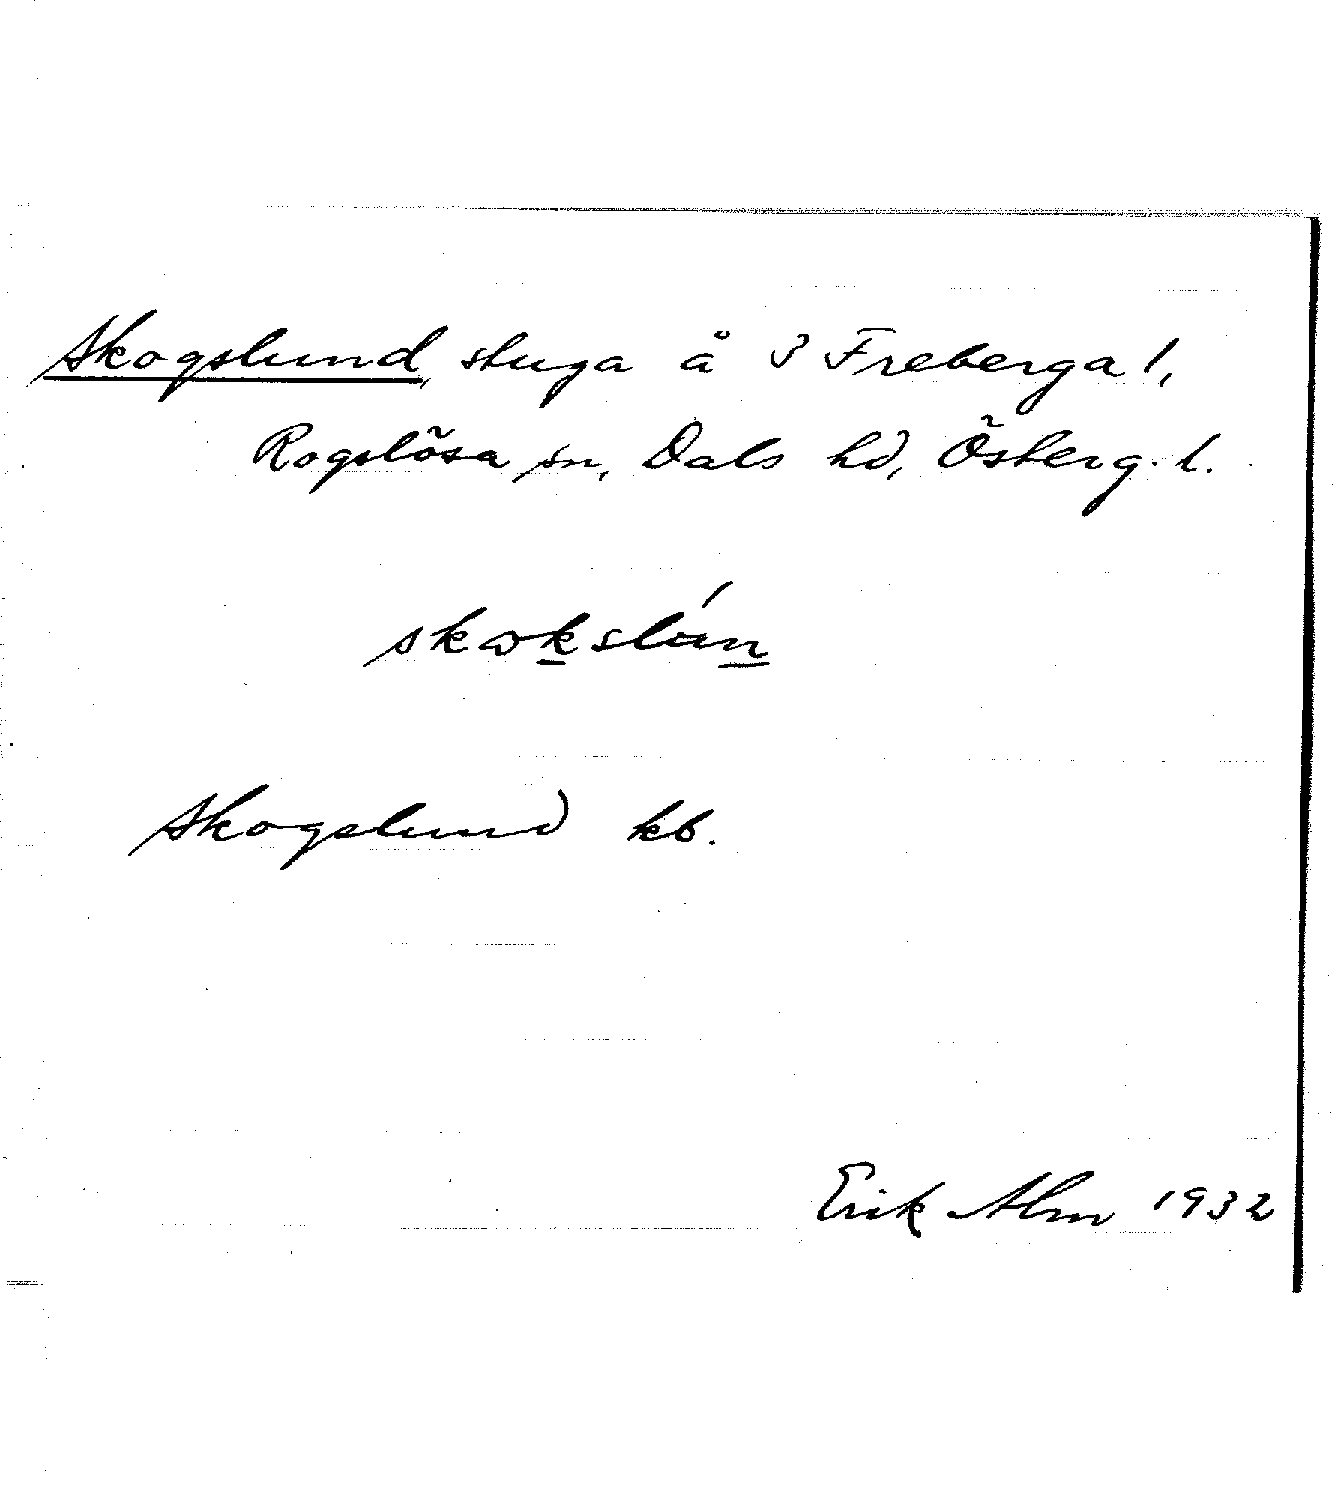 Skogslund, stuga å 3 Freberga 1,
Rogslösa sn, Dals hd, Österg. l.
skωkslún
Skogslund kb.
Erik Alm 1932